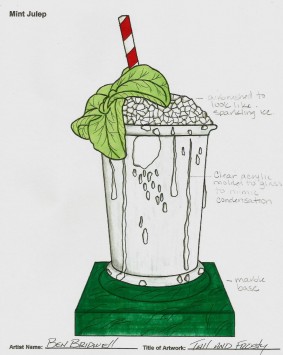 Mint Julep
look like
sparkling ice
Clear acrylic
molded to glass
to mimic
condensation
marble
base
Artist Name: Ben Bridwell Title of Artwork: Tall and Frosty